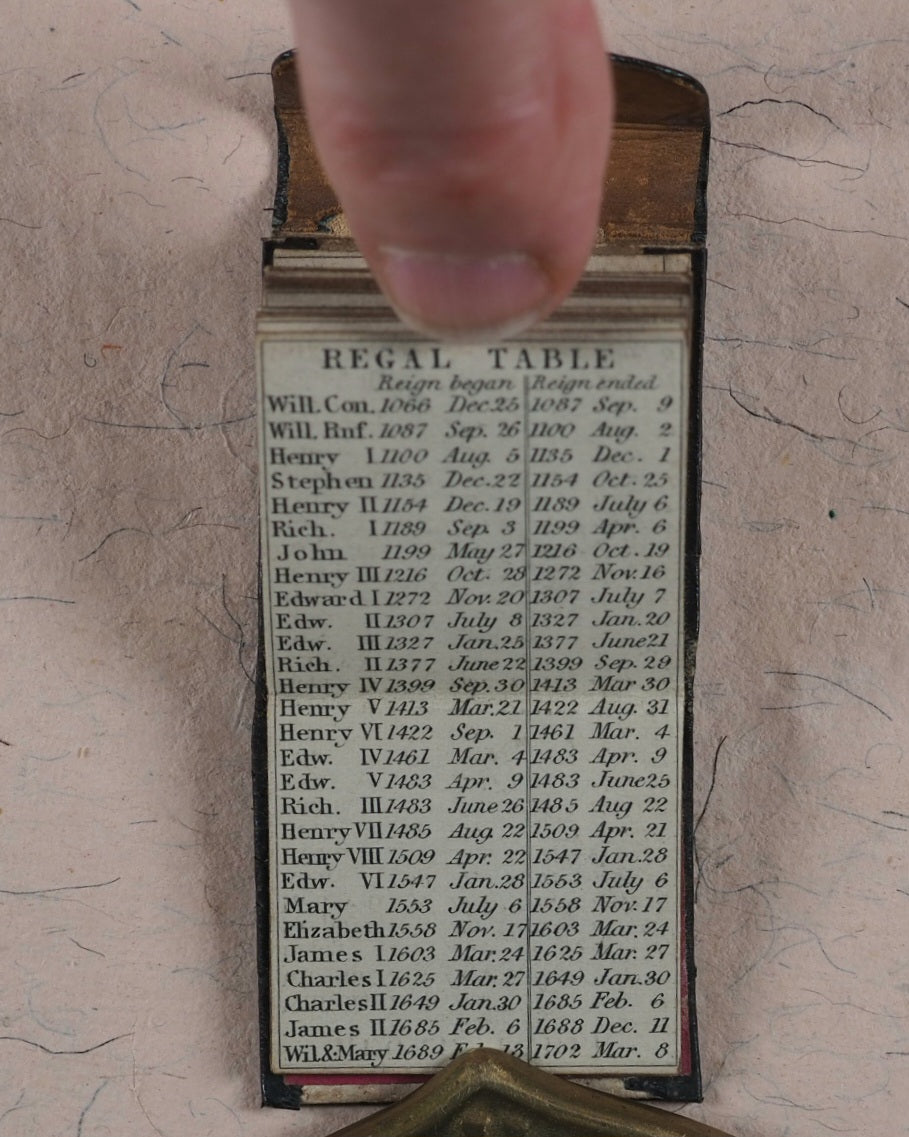 REGAL TABLE
Reign began Reign ended
Will. Con. 1066 Dec. 25 1087 Sep. 9
Will. Ruf. 1087 Sep. 26 1100 Aug. 2
Henry I 1100 Aug. 5 1135 Dec. 1
Stephen 1135 Dec. 22 1154 Oct. 25
Henry II 1154 Dec. 19 1189 July 6
Rich. I 1189 Sep. 3 1199 Apr. 6
John 1199 May 27 1216 Oct. 19
Henry III 1216 Oct. 28 1272 Nov. 16
Edward I 1272 Nov. 20 1307 July 7
Edw. II 1307 July 8 1327 Jan. 20
Edw. III 1327 Jan. 25 1377 June 21
Rich. II 1377 June 22 1399 Sep. 29
Henry IV 1399 Sep. 30 1413 Mar 30
Henry V 1413 Mar. 21 1422 Aug. 31
Henry VI 1422 Sep. 1 1461 Mar. 4
Edw. IV 1461 Mar. 4 1483 Apr. 9
Edw. V 1483 Apr. 9 1483 June 25
Rich. III 1483 June 26 1485 Aug 22
Henry VII 1485 Aug. 22 1509 Apr. 21
Henry VIII 1509 Apr. 22 1547 Jan. 28
Edw. VI 1547 Jan. 28 1553 July 6
Mary 1553 July 6 1558 Nov. 17
Elizabeth 1558 Nov. 17 1603 Mar. 24
James I. 1603 Mar. 24 1625 Mar. 27
Charles I. 1625 Mar. 27 1649 Jan. 30
Charles II 1649 Jan. 30 1685 Feb. 6
James II 1685 Feb. 6 1688 Dec. 11
Wil. & Mary 1689 13 1702 Mar. 8